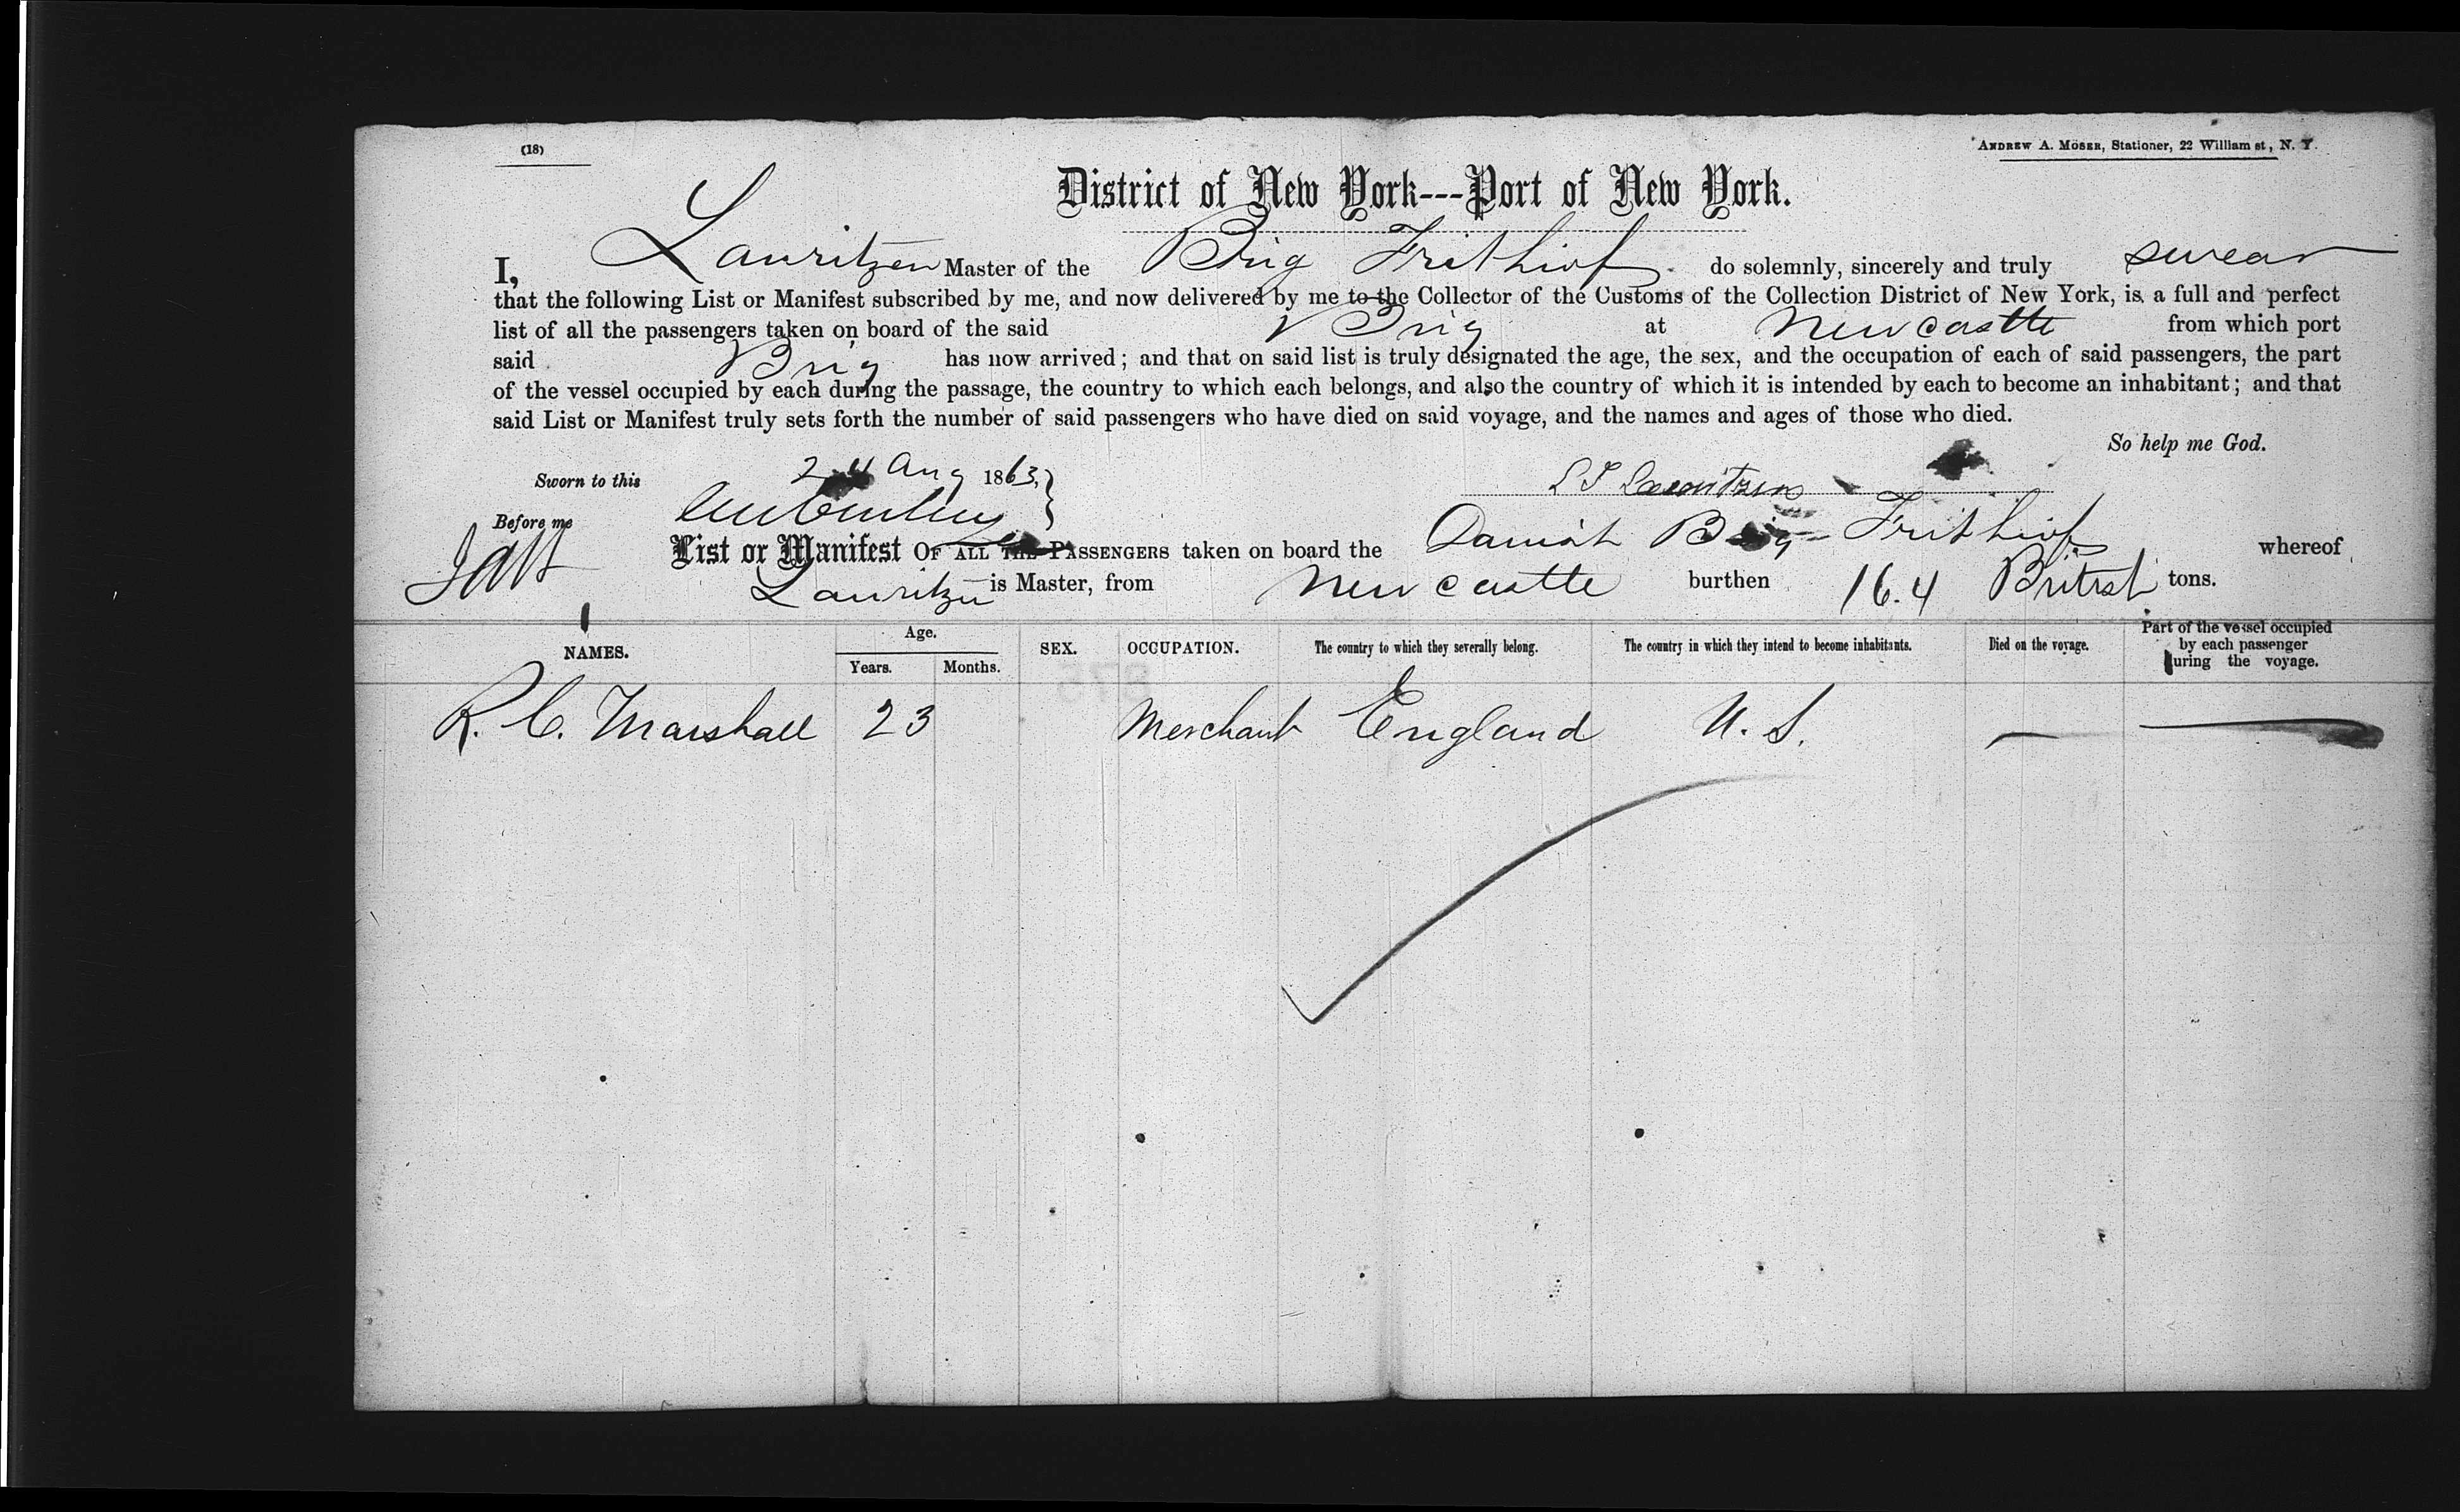 (18)
ANDREW A. MÖSER, Stationer, 22 William st, N. Y.
District of New York---Port of New York.
I, Lauritzen Master of the Brig Frithiof do solemnly, sincerely and truly swear
that the following List or Manifest subscribed by me, and now delivered by me to the Collector of the Customs of the Collection District of New York, is a full and perfect
list of all the passengers taken on board of the said Brig at Newcastle from which port
said Brig has now arrived; and that on said list is truly designated the age, the sex, and the occupation of each of said passengers, the part
of the vessel occupied by each during the passage, the country to which each belongs, and also the country of which it is intended by each to become an inhabitant; and that
said List or Manifest truly sets forth the number of said passengers who have died on said voyage, and the names and ages of those who died.
So help me God.
Sworn to this 24 Aug 1863,
Lauritzen
Before me
List or Manifest OF ALL THE PASSENGERS taken on board the Danish Brig Frithiof whereof
Lauritzen is Master, from Newcastle burthen 16.4 British tons.
NAMES. Age. Years. Months. SEX. OCCUPATION. The country to which they severally belong. The country in which they intend to become inhabitants. Died on the voyage. Part of the vessel occupied by each passenger during the voyage.
R. C. Marshall 23 Merchant England U. S. —